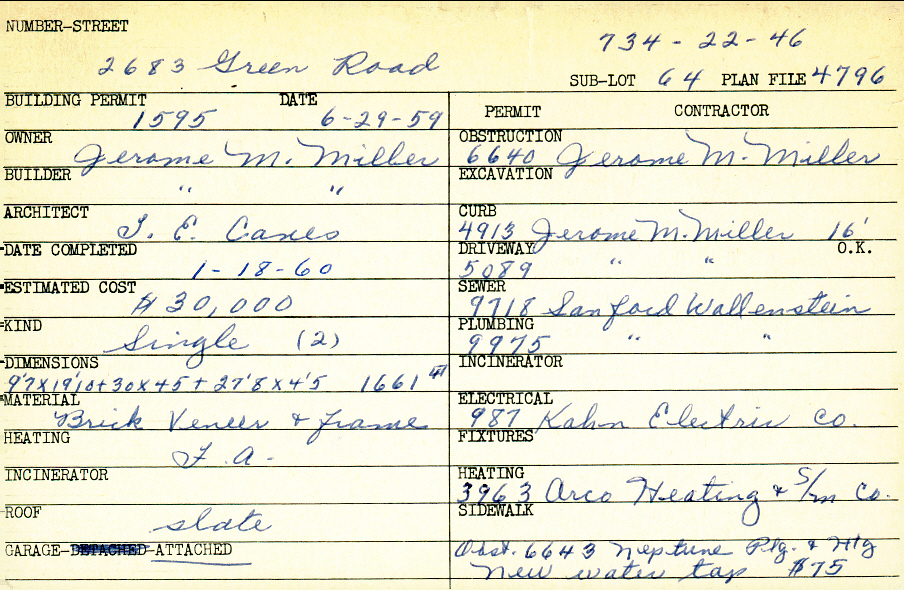 NUMBER-STREET
734-22-46
2683 Green Road
SUB-LOT 64 PLAN FILE 4796
BUILDING PERMIT DATE
1595 6-29-59
OWNER
Jerome M. Miller
BUILDER
" "
ARCHITECT
E.
DATE COMPLETED
1-18-60
ESTIMATED COST
$30,000
KIND
Single (2)
DIMENSIONS
9'7x19'10+30x45+27'8x4'5 1661
MATERIAL
Brick Veneer & frame
HEATING
F.A.
INCINERATOR
ROOF
slate
GARAGE-DETACHED-ATTACHED
PERMIT CONTRACTOR
OBSTRUCTION
6640 Jerome M. Miller
EXCAVATION
CURB
4913 Jerome M. Miller 16'
DRIVEWAY O.K.
5089 " "
SEWER
9718 Sanford Wallenstein
PLUMBING
9975 " "
INCINERATOR
ELECTRICAL
987 Kahn Electric Co.
FIXTURES
HEATING
3963 Arco Heating & S/m Co.
SIDEWALK
Obst. 6643 Neptune Plg. & Htg
New water tap $75